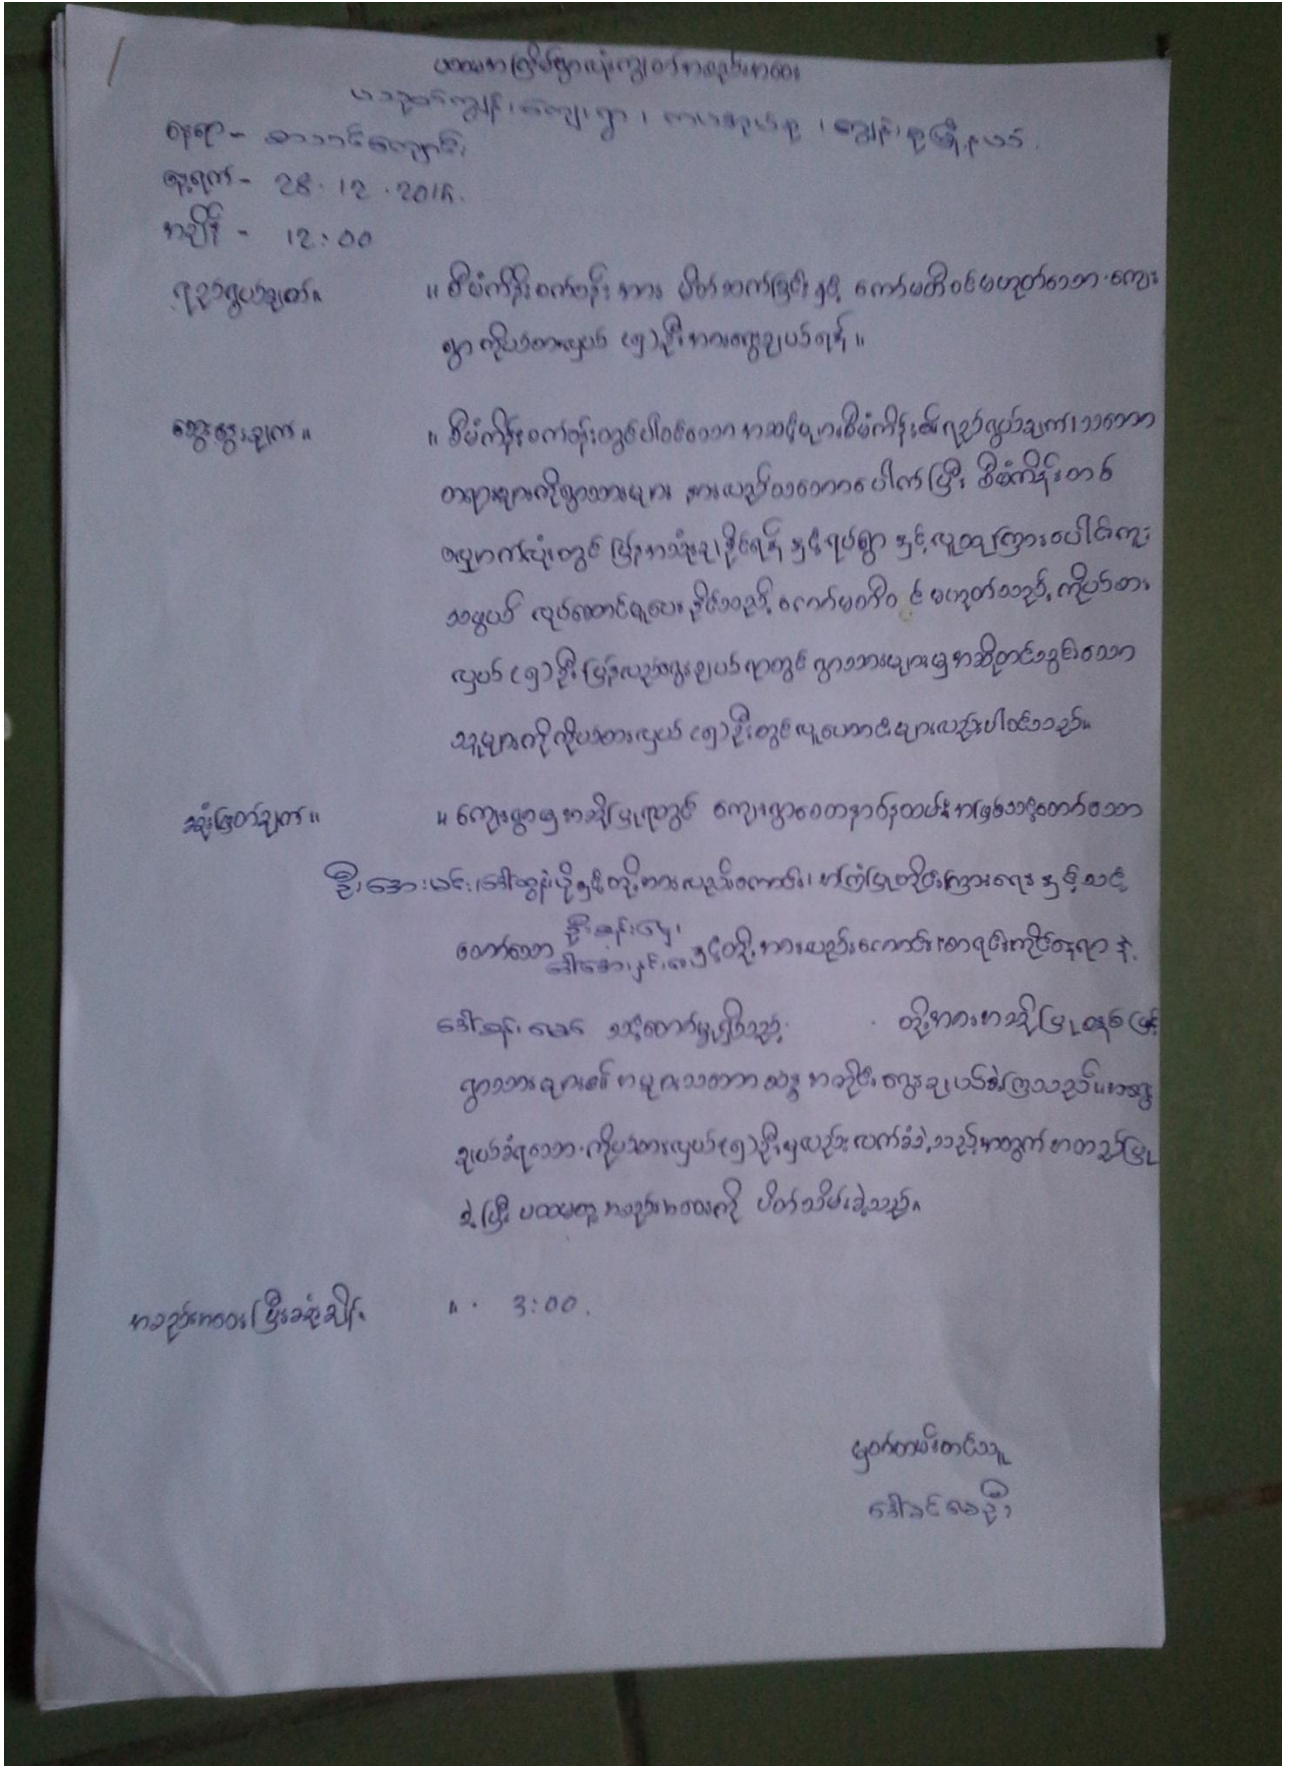 ပထမအကြိမ်ရွာလုံးကျွတ်အစည်းအဝေး
ကျွန်းကျေးရွာ၊ ကျွန်းစုမြို့နယ်
နေရာ - စာသင်ကျောင်း
နေ့ရက် - 28.12.2015.
အချိန် - 12:00
ရည်ရွယ်ချက်။ ။ စီမံကိန်းစက်ဝန်းအား မိတ်ဆက်ခြင်းနှင့် ကော်မတီဝင်မဟုတ်သော ကျေး
ရွာကိုယ်စားလှယ် (၅) ဦးအားရွေးချယ်ရန်။
ဆွေးနွေးချက်။ ။ စီမံကိန်းစက်ဝန်းတွင်ပါဝင်သော အဆင့်များ၊ စီမံကိန်း၏ ရည်ရွယ်ချက်၊ သဘော
တရားများကိုရွာသားများ နားလည်သဘောပေါက်ပြီး စီမံကိန်းတစ်
လျှောက်လုံးတွင် ပြန်အသုံးချနိုင်ရန်နှင့် ရပ်ရွာနှင့် လူထုကြားပေါင်းကူး
သဖွယ် လုပ်ဆောင်ပေးနိုင်သည့် ကော်မတီဝင်မဟုတ်သည့် ကိုယ်စား
လှယ် (၅) ဦး ပြန်လည်ရွေးချယ်ရာတွင် ရွာသားများမှအဆိုတင်သွင်းသော
သူများကို ကိုယ်စားလှယ် (၅) ဦးတွင် လူဟောင်းများလည်းပါဝင်သည်။
ဆုံးဖြတ်ချက်။ ။ ကျေးရွာမှအဆိုပြုရာတွင် ကျေးရွာစေတနာ့ဝန်ထမ်းအဖြစ်သင့်တော်သော
ဦးအေးမင်း၊ ဒေါ်ထွန်းယုံနှင့်တို့အားလည်းကောင်း၊ အကြံပြုတိုင်ကြားရေးနှင့်သင့်
တော်သော ဦးခန်းမှေး
ဒေါ်အေး နှင့်တို့အားလည်းကောင်း၊ စာရင်းကိုင်နေရာနှင့်
ဒေါ်ခန်း သင့်တော်မှုရှိသည့် တို့အားအဆိုပြုတာဖြင့်
ရွာသားများ၏ အများသဘောဆန္ဒအတိုင်း ရွေးချယ်ခဲ့ကြသည်။ အရွေး
ချယ်ခံရသော ကိုယ်စားလှယ် (၅) ဦးမှလည်း လက်ခံခဲ့သည့်အတွက် အတည်ပြု
ခဲ့ပြီး ပထမ အစည်းအဝေးကို ပိတ်သိမ်းခဲ့သည်။
အစည်းအဝေးပြီးဆုံးချိန် ။ 3:00.
မှတ်တမ်းတင်သူ
ဒေါ်ခင်မေဦး